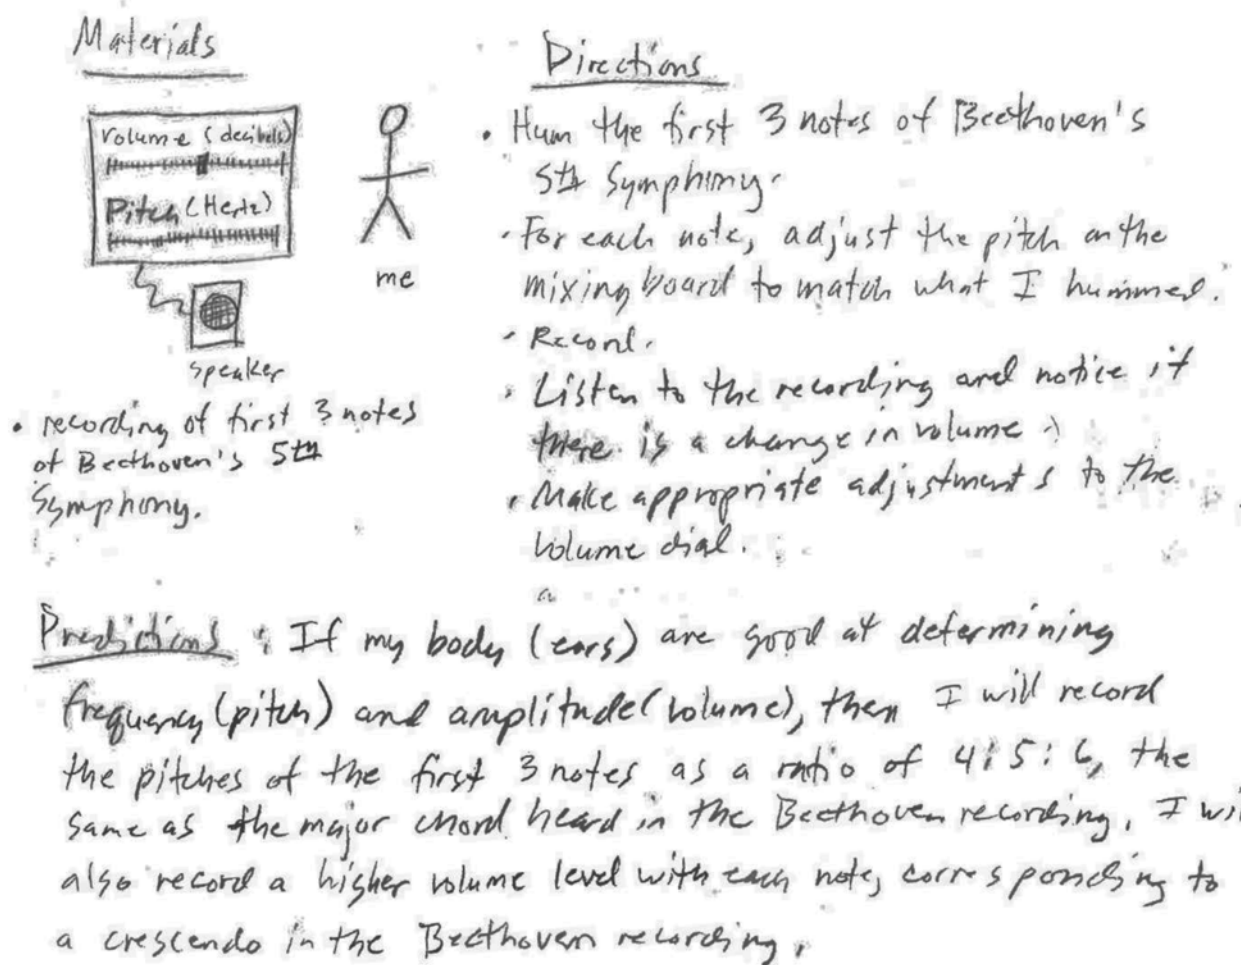 Materials
Volume (decibels)
Pitch (Hertz)
me
speaker
• recording of first 3 notes
of Beethoven's 5th
Symphony.
Directions
• Hum the first 3 notes of Beethoven's
5th Symphony.
• For each note, adjust the pitch on the
mixing board to match what I hummed.
• Record.
• Listen to the recording and notice if
there is a change in volume.
• Make appropriate adjustments to the
volume dial.
Predictions: If my body (ears) are good at determining
frequency (pitch) and amplitude (volume), then I will record
the pitches of the first 3 notes as a ratio of 4:5:6, the
same as the major chord heard in the Beethoven recording. I wil
also record a higher volume level with each note, corresponding to
a crescendo in the Beethoven recording.